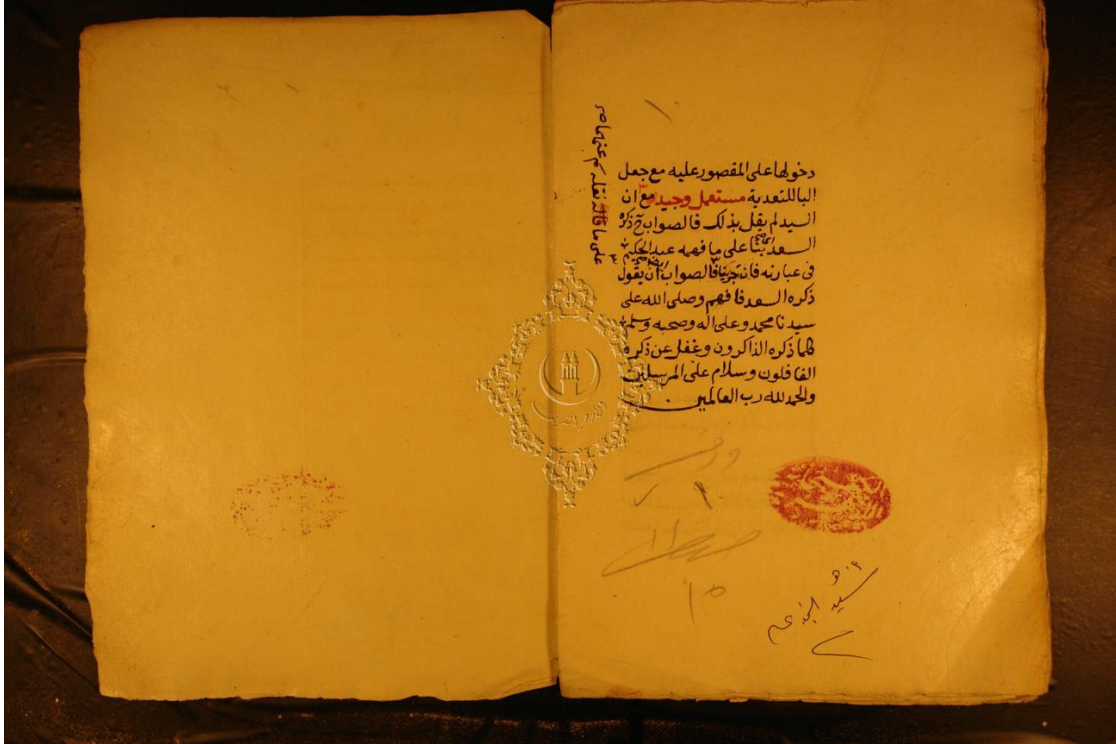 دخولها على المقصور عليه مع جعل
البا للتعدية مستعمل وجيد مع ان
السيد لم يقل بذلك فالصواب ح ذكره
السعد بنا على ما فهمه عبد الحكيم
فى عبارته فالصواب ان يقول
ذكره السعد فافهم وصلى الله على
سيدنا محمد وعلى اله وصحبه وسلم
كلما ذكره الذاكرون وغفل عن ذكره
الغافلون وسلام على المرسلين
والحمد لله رب العالمين
على ما نقله كم عنهما
ورق
١٥